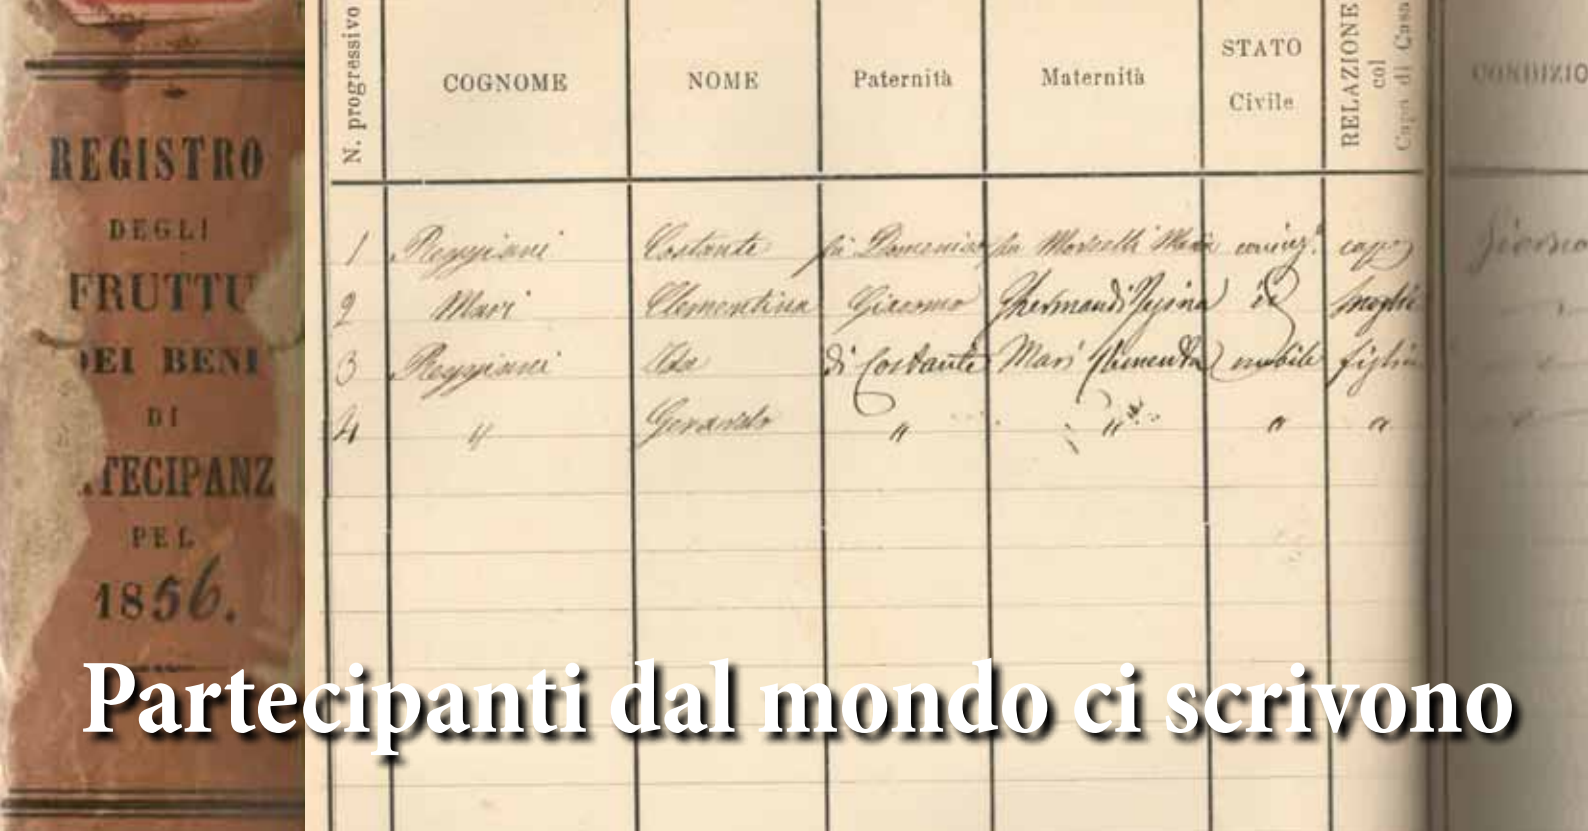 REGISTRO
DEGLI
FRUTTU
DEI BENI
DI
TECIPANZ
PEL
1856.
N. progressivo
COGNOME
NOME
Paternità
Maternità
STATO Civile
RELAZIONE col Capo di Casa
CONDIZIO
1 Reggiani Costante fu Domenico fu Morselli Maria coniug. capo
2 Mari Clementina Giacomo Ghermandi id moglie
3 Reggiani Ida di Costante Mari nubile figlia
4 " " " " "
Partecipanti dal mondo ci scrivono